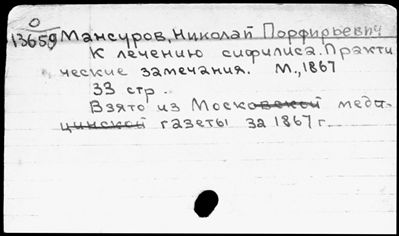 О
13659 Мансуров, Николай Порфирьевич
К лечению сифилиса. Практи
ческие замечания. М., 1867
33 стр.
Взято из Московской меди-
цинской газеты за 1867 г.